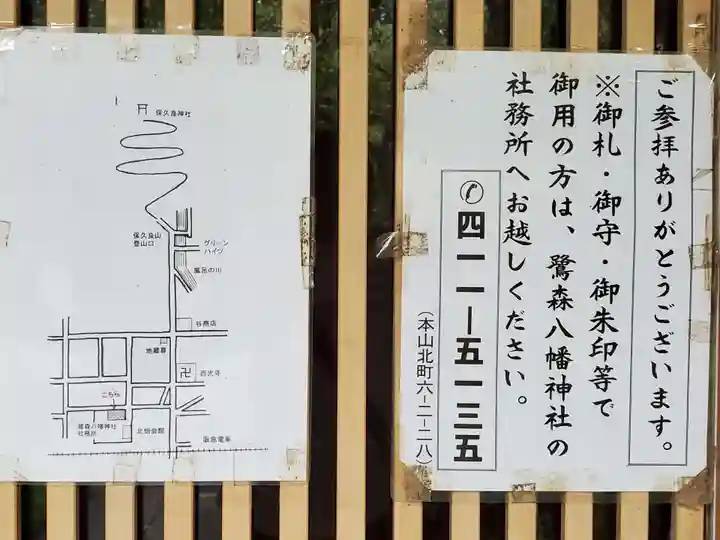 保久良神社
保久良山
登山口
グリーン
ハイツ
風呂の川
谷商店
地蔵尊
卍
西光寺
こちら
鷺森八幡神社
社務所
北畑会館
阪急電車
ご参拝ありがとうございます。
※御札・御守・御朱印等で
御用の方は、鷺森八幡神社の
社務所へお越しください。
✆四一一ー五一三五
(本山北町六-二-二八)